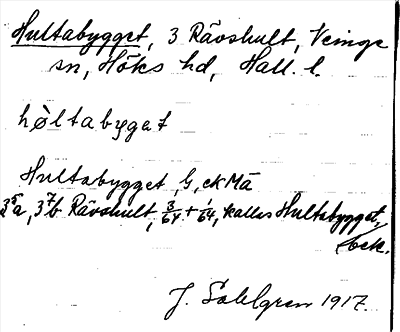 Hultabygget, 3 Rävshult, Veinge
sn, Höks hd, Hall. l.
hòltabygət
Hultabygget, G, ekMä
3⁵a, 3⁷b Rävshult, 3/64 + 1/64, kallas Hultabygget,
Jock.
J. Sahlgren 1917.